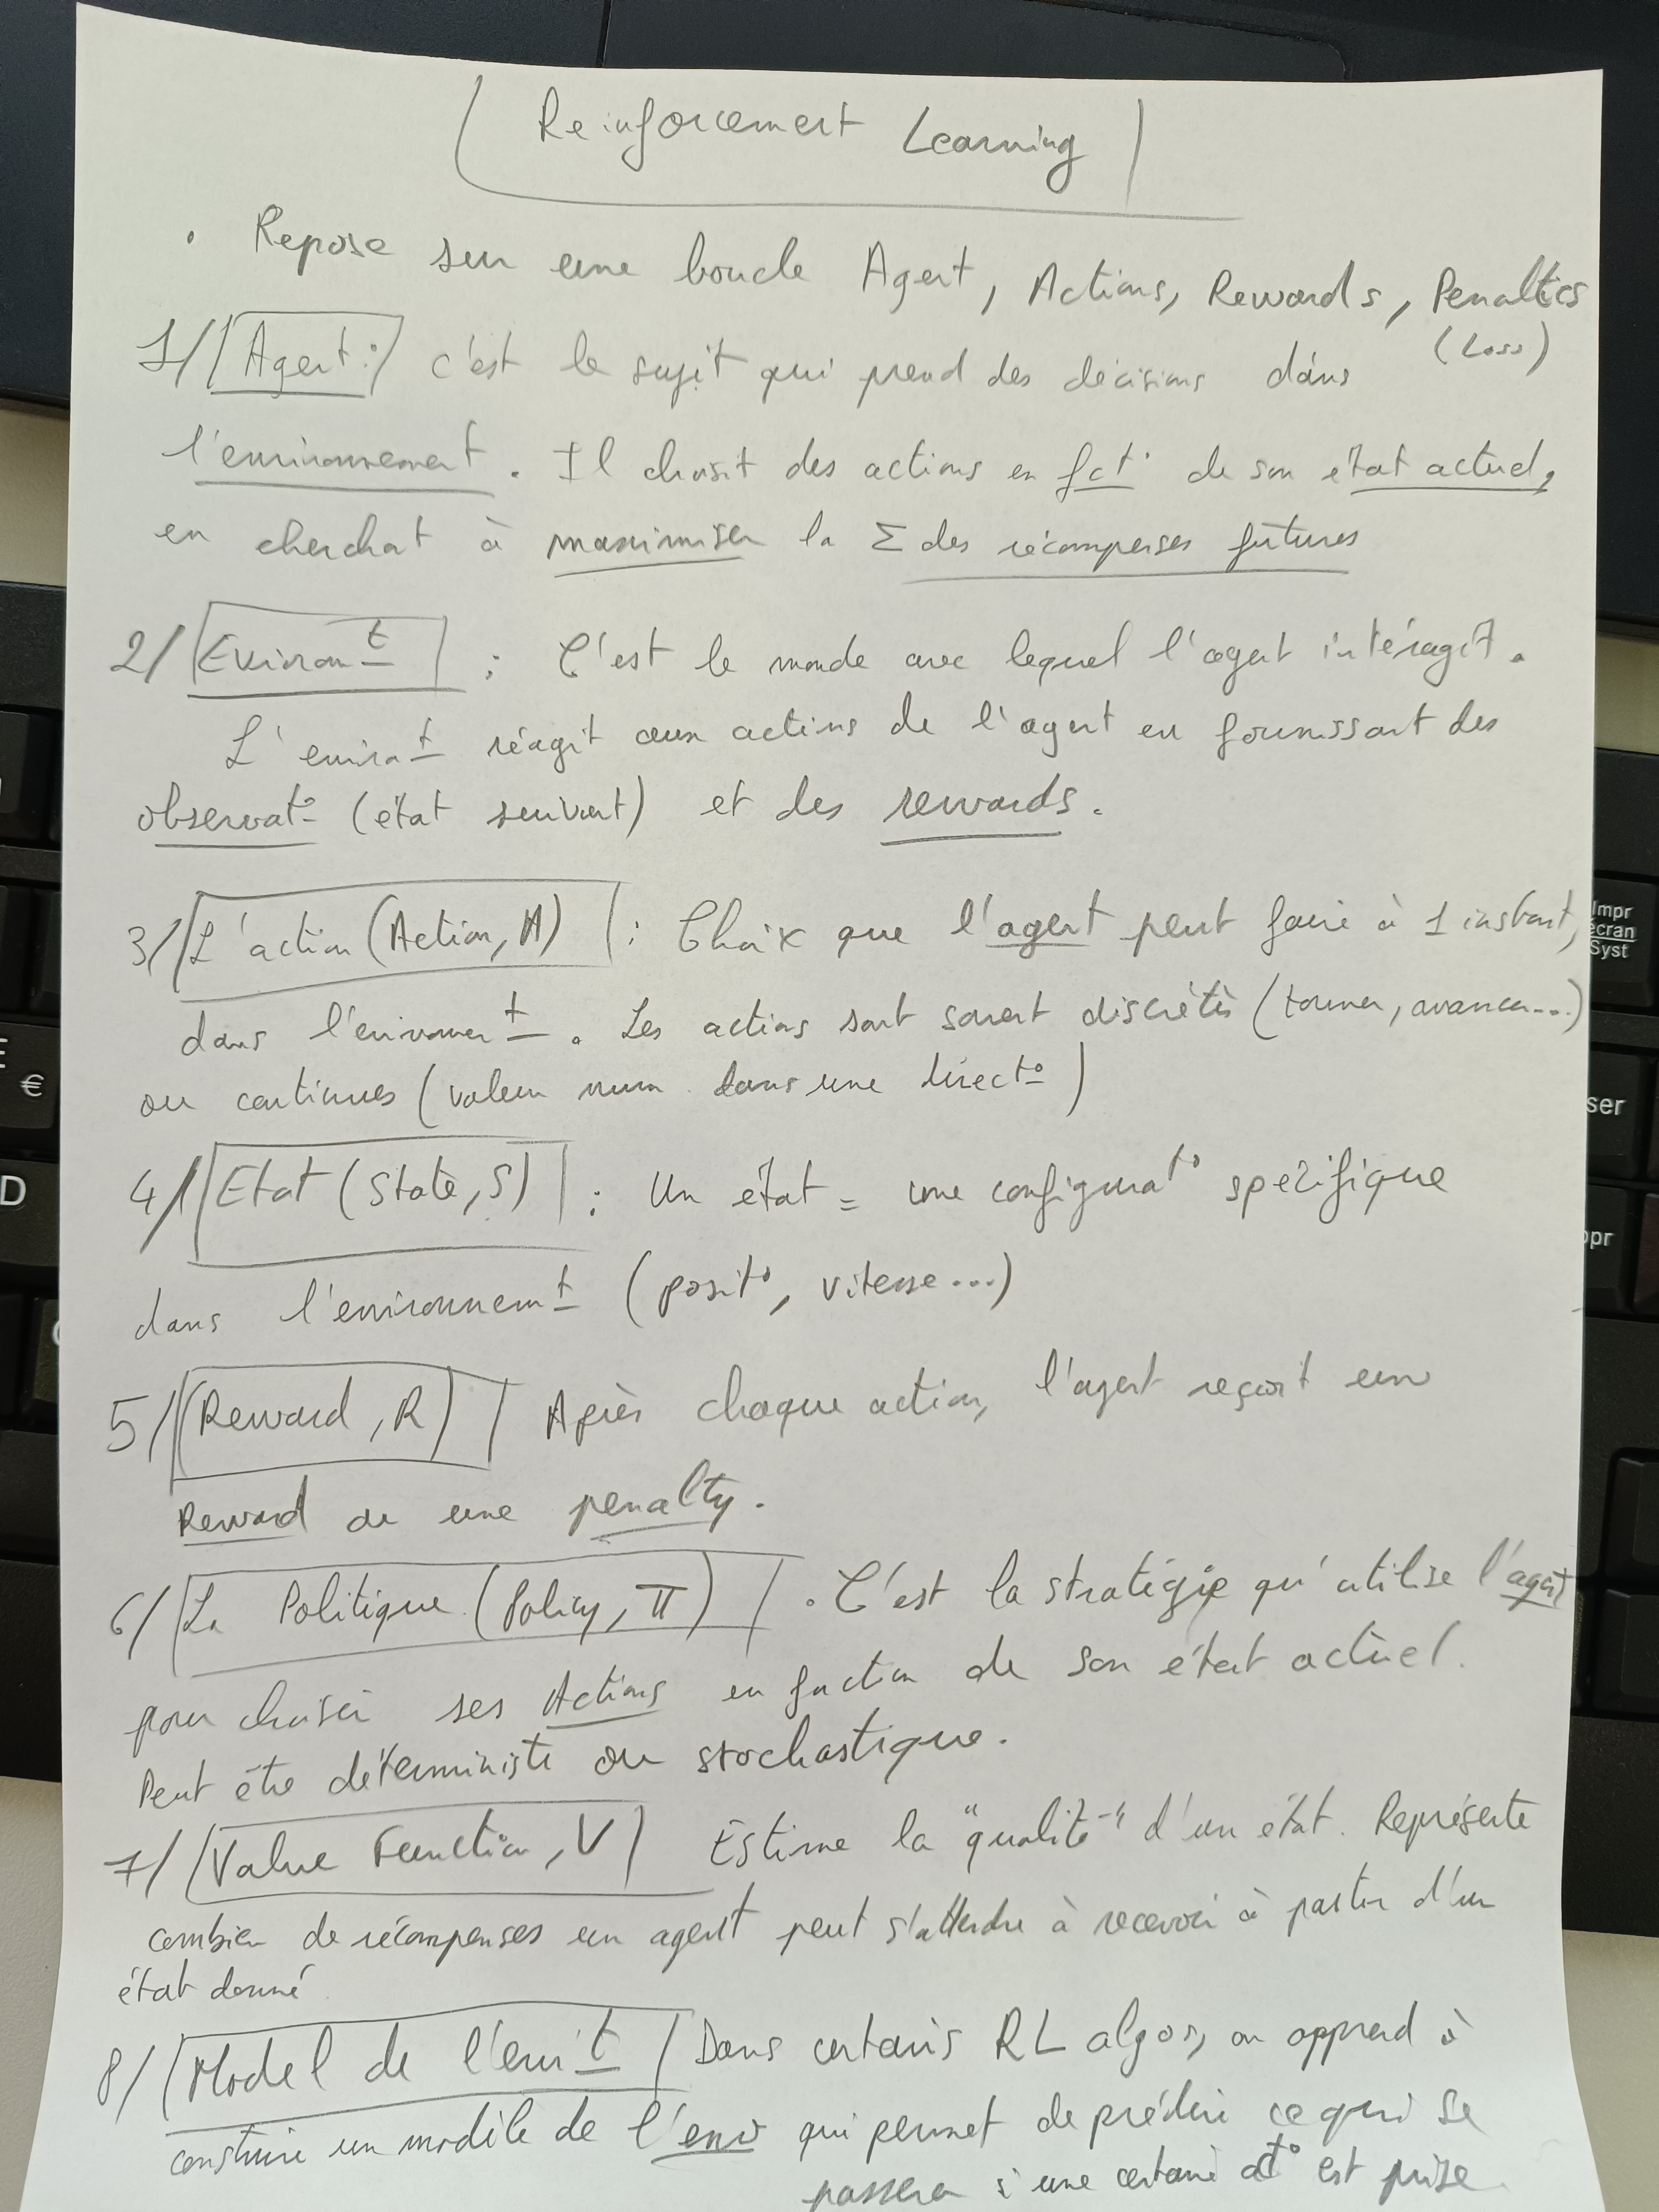 Reinforcement Learning
. Repose sur une boucle Agent, Actions, Rewards, Penalties
(Loss)
1/ Agent : c'est le sujet qui prend des décisions dans
l'environnement. Il choisit des actions en fct° de son état actuel,
en cherchat à maximiser la Σ des récompenses futures
2/ Environt : C'est le monde avec lequel l'agent intéragit.
L'environt réagit aux actions de l'agent en fournissant des
observat° (état suivant) et des rewards.
3/ L'action (Action, A) : Choix que l'agent peut faire à 1 instant,
dans l'environnet. Les actions sont souvent discrétès (tourner, avancer...)
ou continues (valeur num. dans une direct°)
4/ Etat (State, S) : Un état = une configurat° spécifique
dans l'environnemt (posit°, vitesse...)
5/ (Reward, R) Après chaque action, l'agent reçoit un
Reward ou une penalty.
6/ La Politique (Policy, π) . C'est la stratégie qu'utilise l'agent
pour choisir ses Actions en fonction de son état actuel.
Peut être déterministe ou stochastique.
7/ Value Function, V Estime la "qualité" d'un état. Représente
combien de récompenses un agent peut s'attendre à recevoir à partir d'un
état donné
8/ Model de l'envit Dans certains RL algos, on apprend à
construire un modèle de l'env qui permet de prédire ce qui se
passera si une certaine act° est prise
Impr
écran
Syst
€
D
ser
ppr